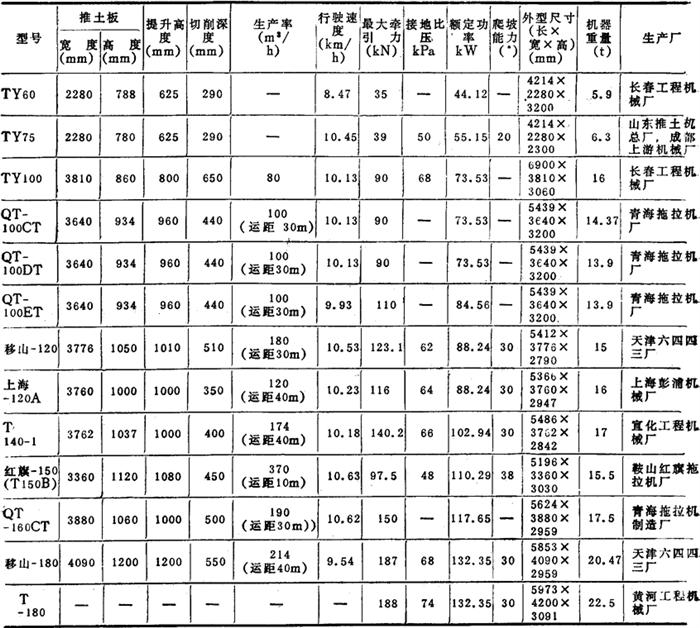 型号 推土板 提升高度(mm) 切削深度(mm) 生产率(m³/h) 行驶速度(km/h) 最大牵引力(kN) 接地比压kPa 额定功率kW 爬坡能力(°) 外型尺寸(长×宽×高)(mm) 机器重量(t) 生产厂
宽度(mm) 高度(mm)
TY60 2280 788 625 290 — 8.47 35 — 44.12 — 4214×2280×3200 5.9 长春工程机械厂
TY75 2280 780 625 290 — 10.45 39 50 55.15 20 4214×2280×2300 6.3 山东推土机总厂,成都上游机械厂
TY100 3810 860 800 650 80 10.13 90 68 73.53 — 6900×3810×3060 16 长春工程机械厂
QT-100CT 3640 934 960 440 100(运距 30m) 10.13 90 — 73.53 — 5439×3640×3200 14.37 青海拖拉机厂
QT-100DT 3640 934 960 440 100(运距30m) 10.13 90 — 73.53 — 5439×3640×3200 13.9 青海拖拉机厂
QT-100ET 3640 934 960 440 100(运距30m) 9.93 110 — 84.56 — 5439×3640×3200. 13.9 青海拖拉机厂
移山-120 3776 1050 1010 510 180(运距30m) 10.53 123.1 62 88.24 30 5412×3776×2790 15 天津六四四三厂
上海-120A 3760 1000 1000 350 120(运距40m) 10.23 116 64 88.24 30 5366×3760×2947 16 上海彭浦机械厂
T 140-1 3762 1037 1000 400 174(运距40m) 10.18 140.2 66 102.94 30 5486×3762×2842 17 宣化工程机械厂
红旗-150(T150B) 3360 1120 1080 450 370(运距10m) 10.63 97.5 48 110.29 38 5196×3360×3030 15.5 鞍山红旗拖拉机厂
QT-160CT 3880 1060 1000 500 190(运距30m)) 10.62 150 — 117.65 — 5624×3880×2959 17.5 青海拖拉机制造厂
移山-180 4090 1200 1200 550 214(运距40m) 9.54 187 68 132.35 30 5853×4090×2959 20.47 天津六四四三厂
T-180 — — — — — — 188 74 132.35 30 5973×4200×3091 22.5 黄河工程机械厂